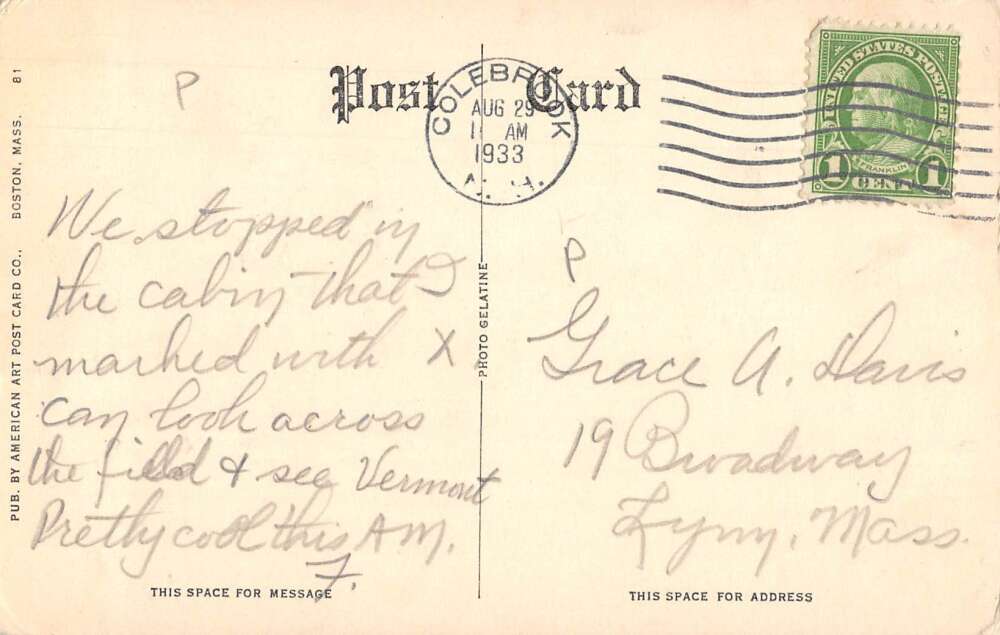 Post Card
COLEBROOK
AUG 29
11 AM
1933
N. H.
UNITED STATES POSTAGE
FRANKLIN
1 CENT 1
P
We stopped in
the cabin that I
marked with X
can look across
the field & see Vermont
Pretty cool this A M.
F.
THIS SPACE FOR MESSAGE
PUB. BY AMERICAN ART POST CARD CO., BOSTON, MASS. 81
PHOTO GELATINE
P
Grace A. Davis
19 Broadway
Lynn, Mass.
THIS SPACE FOR ADDRESS